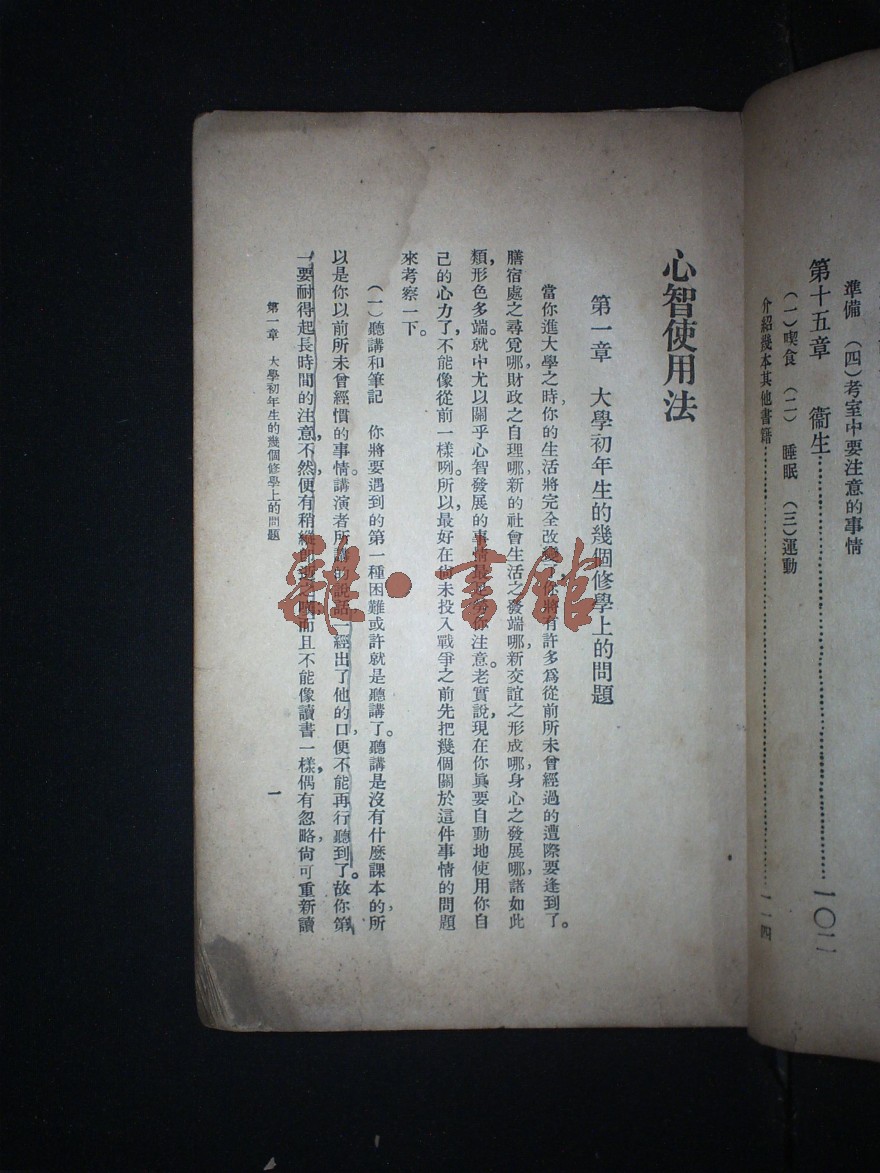 準備　(四)考室中要注意的事情
第十五章　衞生……………………一〇二
(一)喫食　(二)　睡眠　(三)運動
介紹幾本其他書籍……………………一一四
心智使用法
第一章　大學初年生的幾個修學上的問題
當你進大學之時，你的生活將完全改變了，你將有許多爲從前所未曾經過的遭際要逢到了。
膳宿處之尋覓哪，財政之自理哪，新的社會生活之發端哪，新交誼之形成哪，身心之發展哪，諸如此
類，形色多端。就中尤以關乎心智發展的事情最要你注意。老實說，現在你眞要自動地使用你自
己的心力了，不能像從前一樣咧。所以，最好在尙未投入戰爭之前先把幾個關於這件事情的問題
來考察一下。
(一)聽講和筆記　你將要遇到的第一種困難或許就是聽講了。聽講是沒有什麼課本的，所
以是你以前所未曾經慣的事情。講演者所講的說話一經出了他的口，便不能再行聽到了。故你第
一要耐得起長時間的注意，不然，便有稍縱卽逝之嘆；而且不能像讀書一樣，偶有忽略，尙可重新讀
第一章　大學初年生的幾個修學上的問題
一
雜·書館